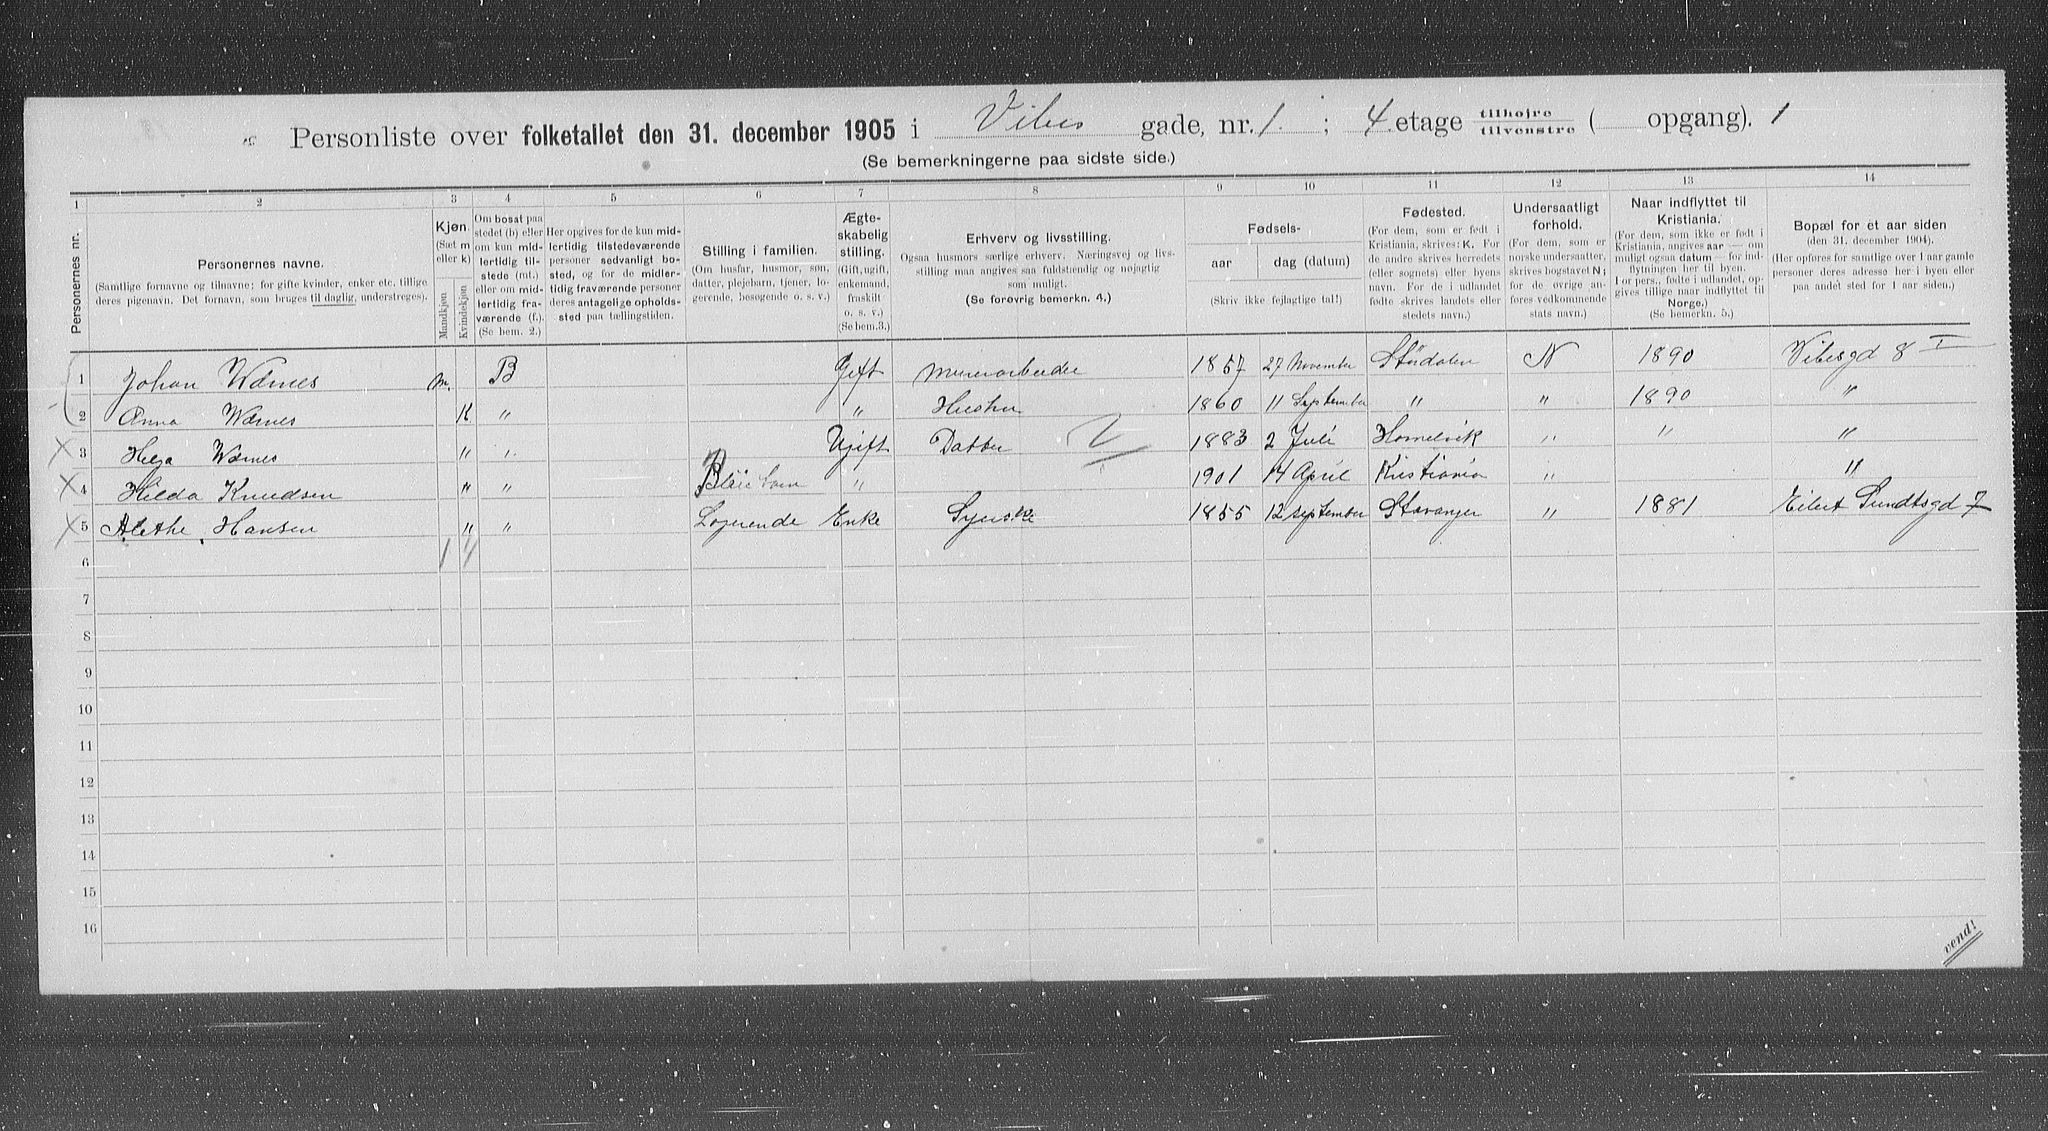 Personliste over folketallet den 31. december 1905 i Vibes gade, nr. 1. ; 4 etage tilhøjre tilvenstre ( opgang). 1
(Se bemerkningerne paa sidste side.)
1 2 3 4 5 6 7 8 9 10 11 12 13 14
Personernes nr.
Personernes navne.
(Samtlige fornavne og tilnavne; for gifte kvinder, enker etc. tillige
deres pigenavn. Det fornavn, som bruges til daglig, understreges).
Kjøn
(Sæt m
eller k)
Mandkjøn
Kvindekjøn
Om bosat paa
stedet (b) eller
om kun mid-
lertidig til-
stede (mt.)
eller om mid-
lertidig fra-
værende (f.)
(Se bem. 2.)
Her opgives for de kun mid-
lertidig tilstedeværende
personer sedvanligt bo-
sted, og for de midler-
tidig fraværende personer
deres antagelige opholds-
sted paa tællingstiden.
Stilling i familien.
(Om husfar, husmor, søn,
datter, plejebarn, tjener, lo-
gerende, besøgende o. s. v.)
Ægte-
skabelig
stilling.
(Gift, ugift,
enkemand,
fraskilt
o. s. v.)
(Se bem.3.)
Erhverv og livsstilling.
Ogsaa husmors særlige erhverv. Næringsvej og livs-
stilling maa angives saa fuldstændig og nøjagtig
som muligt.
(Se forøvrig bemerkn. 4.)
Fødsels-
aar
dag (datum)
(Skriv ikke fejlagtige tal!)
Fødested.
(For dem, som er født i
Kristiania, skrives: K. For
de andre skrives herredets
(eller sognets) eller byens
navn. For de i udlandet
fødte skrives landets eller
stedets navn.)
Undersaatligt
forhold.
(For dem, som er
norske undersaatter,
skrives bogstavet N;
for de øvrige an-
føres vedkommende
stats navn.)
Naar indflyttet til
Kristiania.
(For dem, som ikke er født i
Kristiania, angives aar — om
muligt ogsaa datum — for ind-
flytningen her til byen.
For pers., fødte i udlandet, op-
gives tillige naar indflyttet til
Norge.)
(Se bemerkn. 5.)
Bopæl for et aar siden
(den 31. december 1904).
(Her opføres for samtlige over 1 aar gamle
personer deres adresse her i byen eller
paa andet sted for 1 aar siden.)
1 Johan Wærnes m. B Gift Murerarbeider 1857 27 November Stördalen N 1890 Vibesgd 8 I
2 Anna Wærnes K " " Hustru 1860 11 September " " 1890 "
3 Helga Wærnes " " Ugift Datter 1883 2 Juli Homelvik " " "
4 Hilda Knudsen " " " 1901 14 April Kristiania " "
5 Alethe Hansen " " Logerende Enke Syerske 1855 12 september Stavanger " 1881 Eilert Sundtsgd 7
6 1 4
7
8
9
10
11
12
13
14
15
16
vend!